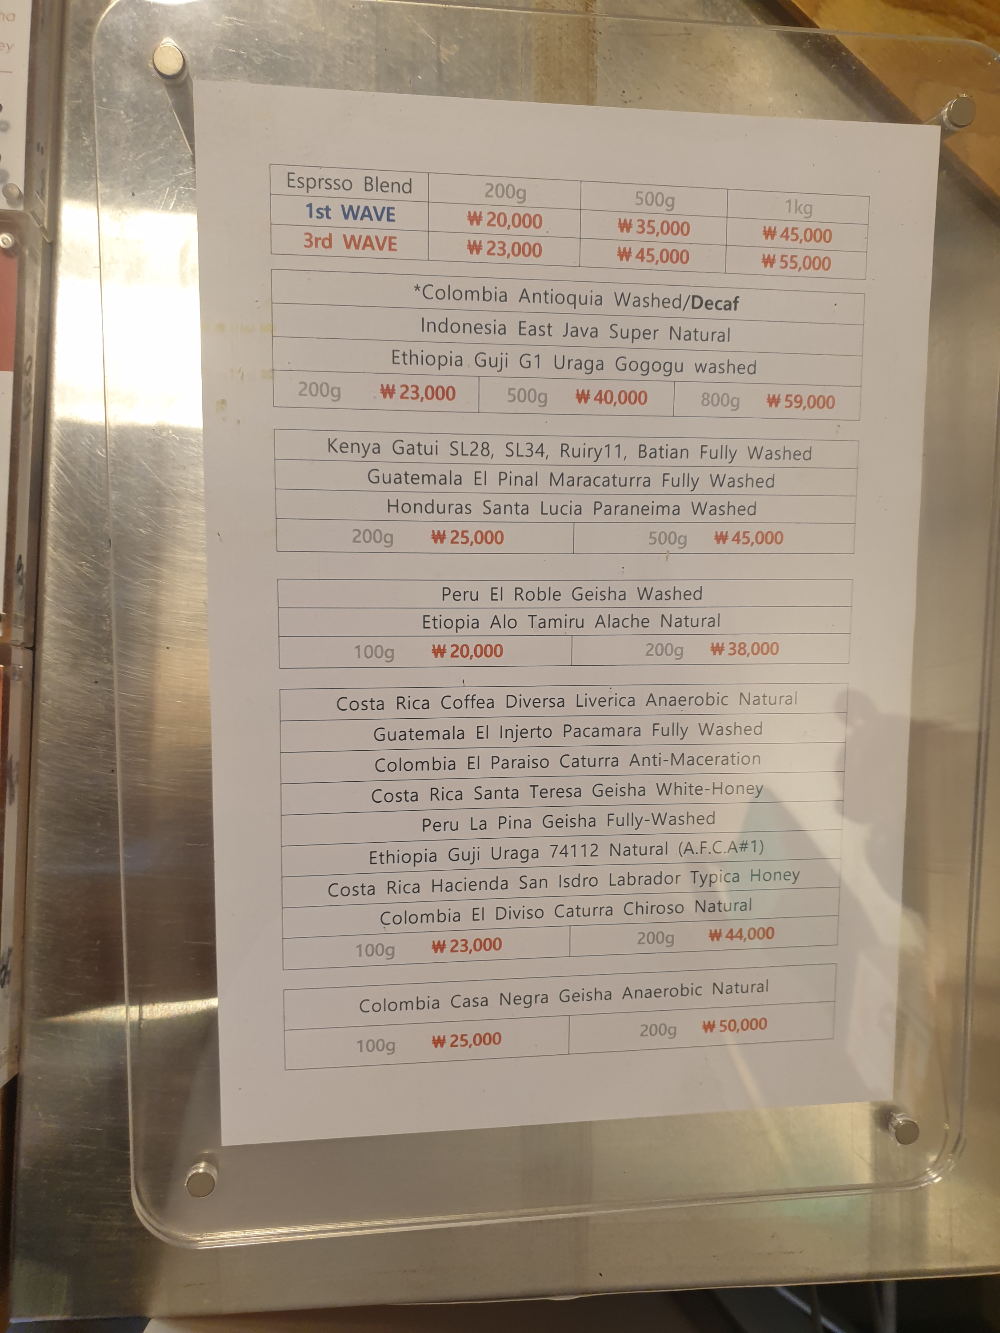 Esprsso Blend 200g 500g 1kg
1st WAVE ₩20,000 ₩35,000 ₩45,000
3rd WAVE ₩23,000 ₩45,000 ₩55,000
*Colombia Antioquia Washed/Decaf
Indonesia East Java Super Natural
Ethiopia Guji G1 Uraga Gogogu washed
200g ₩23,000 500g ₩40,000 800g ₩59,000
Kenya Gatui SL28, SL34, Ruiry11, Batian Fully Washed
Guatemala El Pinal Maracaturra Fully Washed
Honduras Santa Lucia Paraneima Washed
200g ₩25,000 500g ₩45,000
Peru El Roble Geisha Washed
Etiopia Alo Tamiru Alache Natural
100g ₩20,000 200g ₩38,000
Costa Rica Coffea Diversa Liverica Anaerobic Natural
Guatemala El Injerto Pacamara Fully Washed
Colombia El Paraiso Caturra Anti-Maceration
Costa Rica Santa Teresa Geisha White-Honey
Peru La Pina Geisha Fully-Washed
Ethiopia Guji Uraga 74112 Natural (A.F.C.A#1)
Costa Rica Hacienda San Isdro Labrador Typica Honey
Colombia El Diviso Caturra Chiroso Natural
100g ₩23,000 200g ₩44,000
Colombia Casa Negra Geisha Anaerobic Natural
100g ₩25,000 200g ₩50,000